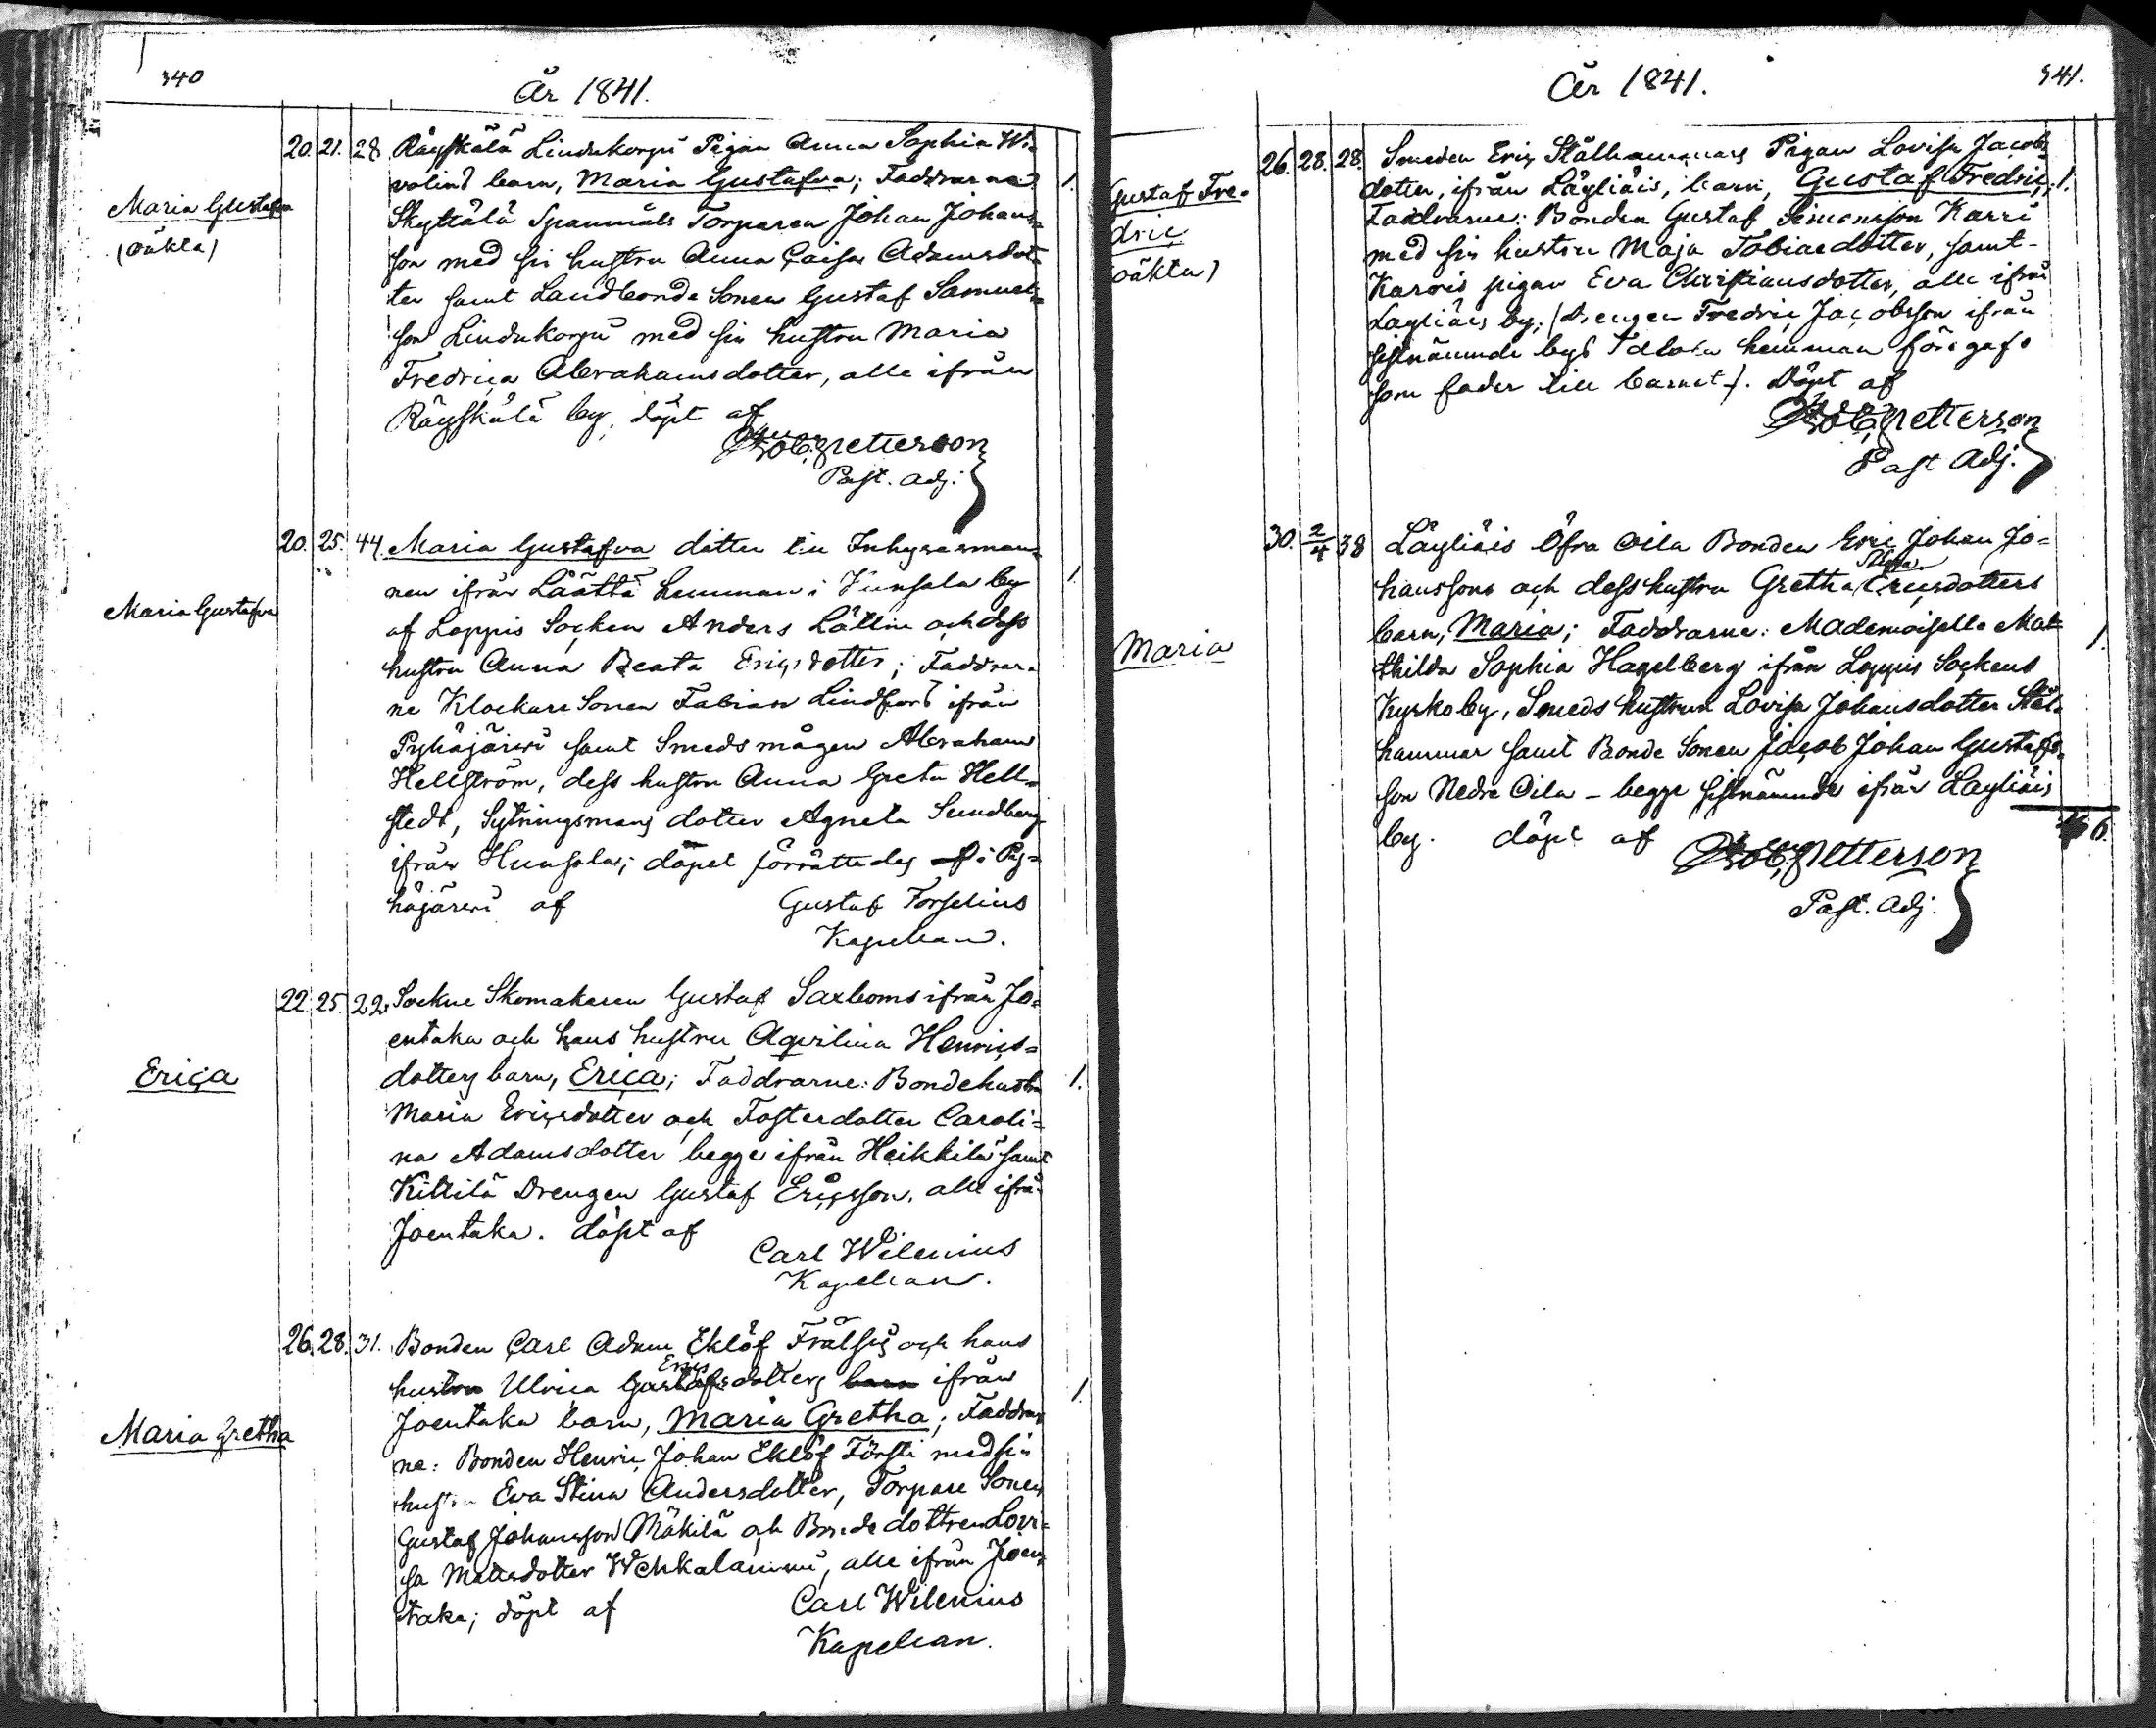 340
År 1841.
20. 21. 28 Räyskälä Lindukorpi Pigan Anna Sophia Wi-
valind barn, Maria Gustafva; Faddrarne
1.
Maria Gustafva
(oäkta)
Skyttälä Spannmåls Torparen Johan Johans-
son med sin hustru Anna Caisa Adamsdot-
ter samt Landbonde Sonen Gustaf Samuels-
son Lindukorpi med sin hustru Maria
Fredrica Abrahamsdotter, alle ifrån
Räyskälä by, döpt af
Petterson
Past. Adj.
20. 25. 44. Maria Gustafva dotter till Inhysesman-
nen ifrån Läättä hemman i Hunsala by
1.
Maria Gustafva
af Loppis Socken Anders Lättin och dess
hustru Anna Beata Ericsdotter; Faddrar-
ne Klockare Sonen Fabian Lindfors ifrån
Pyhäjärwi samt Smeds mågen Abraham
Hellström, dess hustru Anna Greta Hell-
stedt, Sytningsmans dotter Agneta Sundberg
ifrån Hunsala; döpet förrättades i Py-
häjärwi af Gustaf Forselius
Kapellan.
22. 25. 22. Sockne Skomakaren Gustaf Saxboms ifrån Jo-
entaka och hans hustru Aqvilina Henrics-
Erica
dotters barn, Erica; Faddrarne: Bondehustru
1.
Maria Ericsdotter och Fosterdotter Caroli-
na Adamsdotter begge ifrån Heikkilä samt
Kittilä Drengen Gustaf Ericsson, alle ifrån
Joentaka. döpt af
Carl Wilenius
Kapellan.
26. 28. 31. Bonden Carl Adam Eklöf Frälsis och hans
Erics
hustru Ulrica Gustafsdotters barn ifrån
1.
Maria Gretha
Joentaka barn, Maria Gretha; Faddrar-
ne: Bonden Henric Johan Eklöf Försti med sin
hustru Eva Stina Andersdotter, Torpare Sonen
Gustaf Johansson Mäkilä och Bonde dottren Lovi-
sa Mattsdotter Wehkalammi, alle ifrån Joen-
taka; döpt af Carl Wilenius
Kapellan.
År 1841.
341.
26. 28. 28. Smeden Eric Stålhammars Pigan Lovisa Jacobs-
dotter, ifrån Läyliäis, barn, Gustaf Fredric;
1.
Gustaf Fre-
dric
(oäkta)
Faddrarne: Bonden Gustaf Simonsson Karri
med sin hustru Maja Tobiaedotter, samt
Karris pigan Eva Christiansdotter, alle ifrån
Layliäis by; (Drengen Fredric Jacobsson ifrån
sistnämnde bys hemman föregafs
som fader till barnet). Döpt af
Petterson
Past Adj.
30. 2/4 38 Läyliäis Öfra Oila Bonden Eric Johan Jo-
Stina
hanssons och dess hustru Gretha Ericsdotters
Maria
barn, Maria; Faddrarne: Mademoiselle Mat-
1.
thilda Sophia Hagelberg ifrån Loppis Sockens
Kyrkoby, Smeds hustrun Lovisa Johansdotter Stål-
hammar samt Bonde Sonen Jacob Johan Gustafs-
son Nedre Oila – begge sistnämnde ifrån Layliäis
by. döpt af
6.
Petterson
Past. Adj.